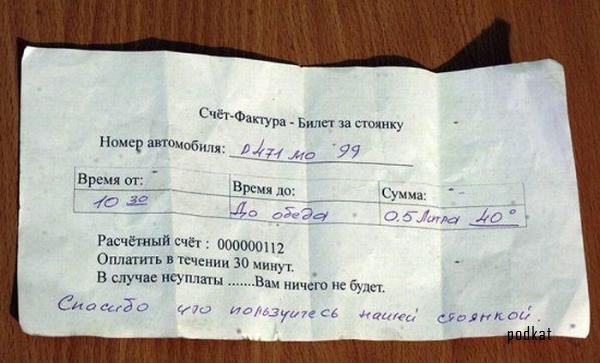 Счёт-Фактура - Билет за стоянку
Номер автомобиля: р 471 мо 99
Время от: Время до: Сумма:
10 30 До обеда 0.5 Литра 40°
Расчётный счёт : 000000112
Оплатить в течении 30 минут.
В случае неуплаты .......Вам ничего не будет.
Спасибо что пользуетесь нашей стоянкой.
podkat